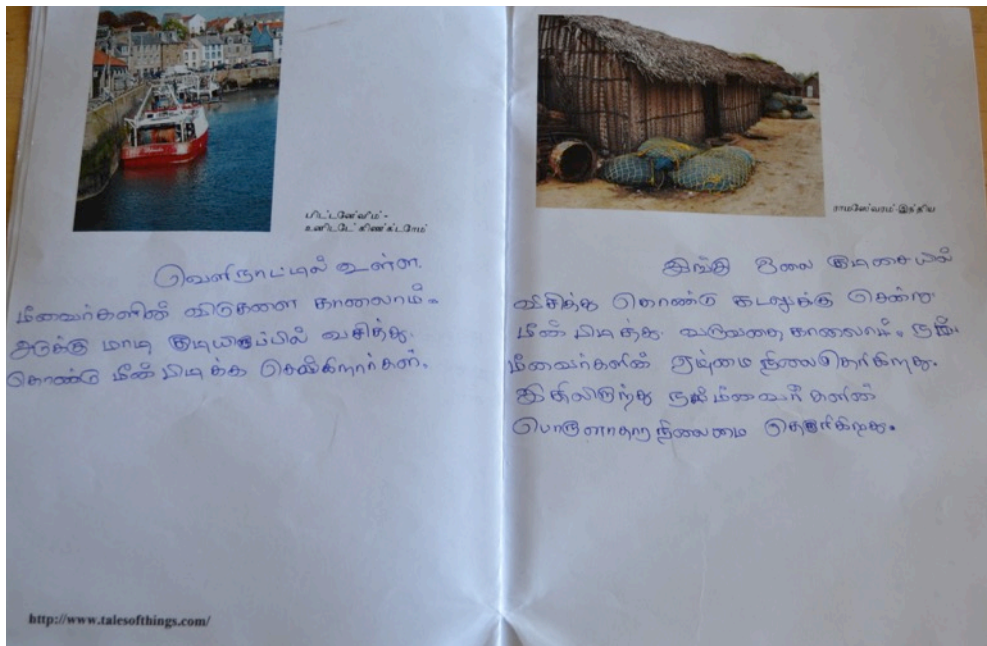 பிட்டனேவீம் -
உனிடடே் கிணக்டாேம்
வெளிநாட்டில் உள்ள
மீனவர்களின் விடுகளை காணலாம்.
அடுக்கு மாடி குடியிருப்பில் வசித்து
கொண்டு மீன் பிடிக்க செல்கிறார்கள்.
http://www.talesofthings.com/
ராமஸே்வரம்-இந்திய
இங்கு ஓலை குடிசையில்
வசித்து கொண்டு கடலுக்கு சென்று
மீன் பிடித்து வருவதை காணலாம். நம்
மீனவர்களின் ஏழ்மை நிலை தெரிகிறது.
இதிலிருந்து நம் மீனவர் களின்
பொருளாதார நிலைமை தெரிகிறது.